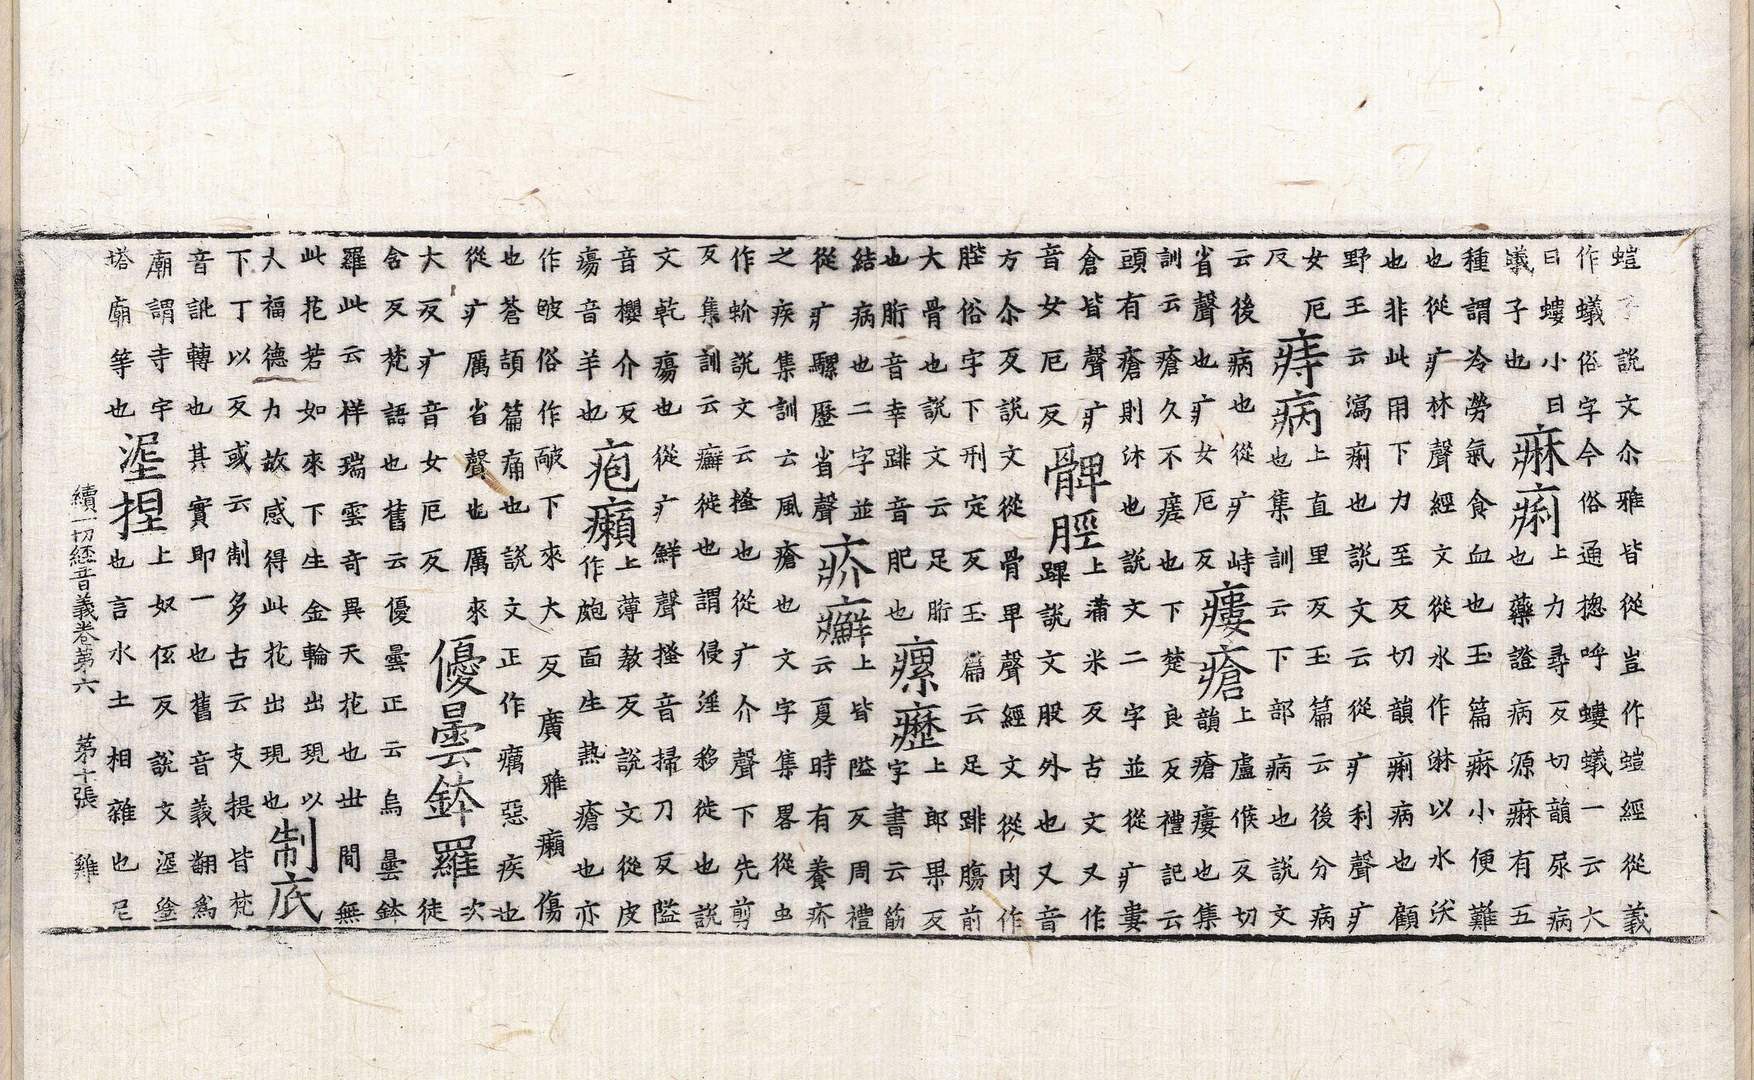 螘子説文尒雅皆從豈作螘經從義
作蟻俗字今俗通揔呼螻蟻一云大
曰螻小曰
蟻子也
痳痢
上力尋反切韻尿病
也藥證病源痳有五
種謂冷勞氣食血也玉篇痳小便難
也從疒林聲經文從水作淋以水沃
也非此用下力至反切韻痢病也顧
野王云瀉痢也説文云從疒利聲疒
女厄
反
痔病
上直里反玉篇云後分病
也集訓云下部病也説文
云後病也從疒峙
省聲也疒女厄反
瘻瘡
上盧候反切
韻瘡瘻也集
訓云瘡久不瘥也下楚良反禮記云
頭有瘡則沐也説文二字並從疒婁
倉皆聲疒
音女厄反
髀脛
上蒲米反古文又作
䠋説文股外也又音
方尒反説文從骨卑聲經文從肉作
䏶俗字下刑定反玉篇云足跰腸前
大骨也説文云足胻
也胻音幸跰音肥也
瘰癧
上郎果反
字書云筋
結病也二字並
從疒騾歷省聲
疥癬
上皆隘反周禮
云夏時有養疥
之疾集訓云風瘡也文字集畧從虫
作蚧説文云搔也從疒介聲下先剪
反集訓云癬徙也謂侵淫移徙也説
文乾瘍也從疒鮮聲搔音掃刀反隘
音櫻介反
瘍音羊也
疱癩
上薄教反説文從皮
作皰面生熱瘡也亦
作皰俗作下來大反廣雅癩傷
也蒼頡篇痛也説文正作癘惡疾也
從疒厲省聲也厲來
大反疒音女厄反
優曇鉢羅
次
徒
含反梵語也舊云優曇正云烏曇鉢
羅此云祥瑞雲奇異天花也世間無
此花若如來下生金輪出現以
大福德力故感得此花出現也
制底
下丁以反或云制多古云支提皆梵
音訛轉也其實即一也舊音義翻爲
廟謂寺宇
塔廟等也
涅捏
上奴反説文涅塗
也言水土相雜也尼
續一切經音義卷第六 第十張 雞